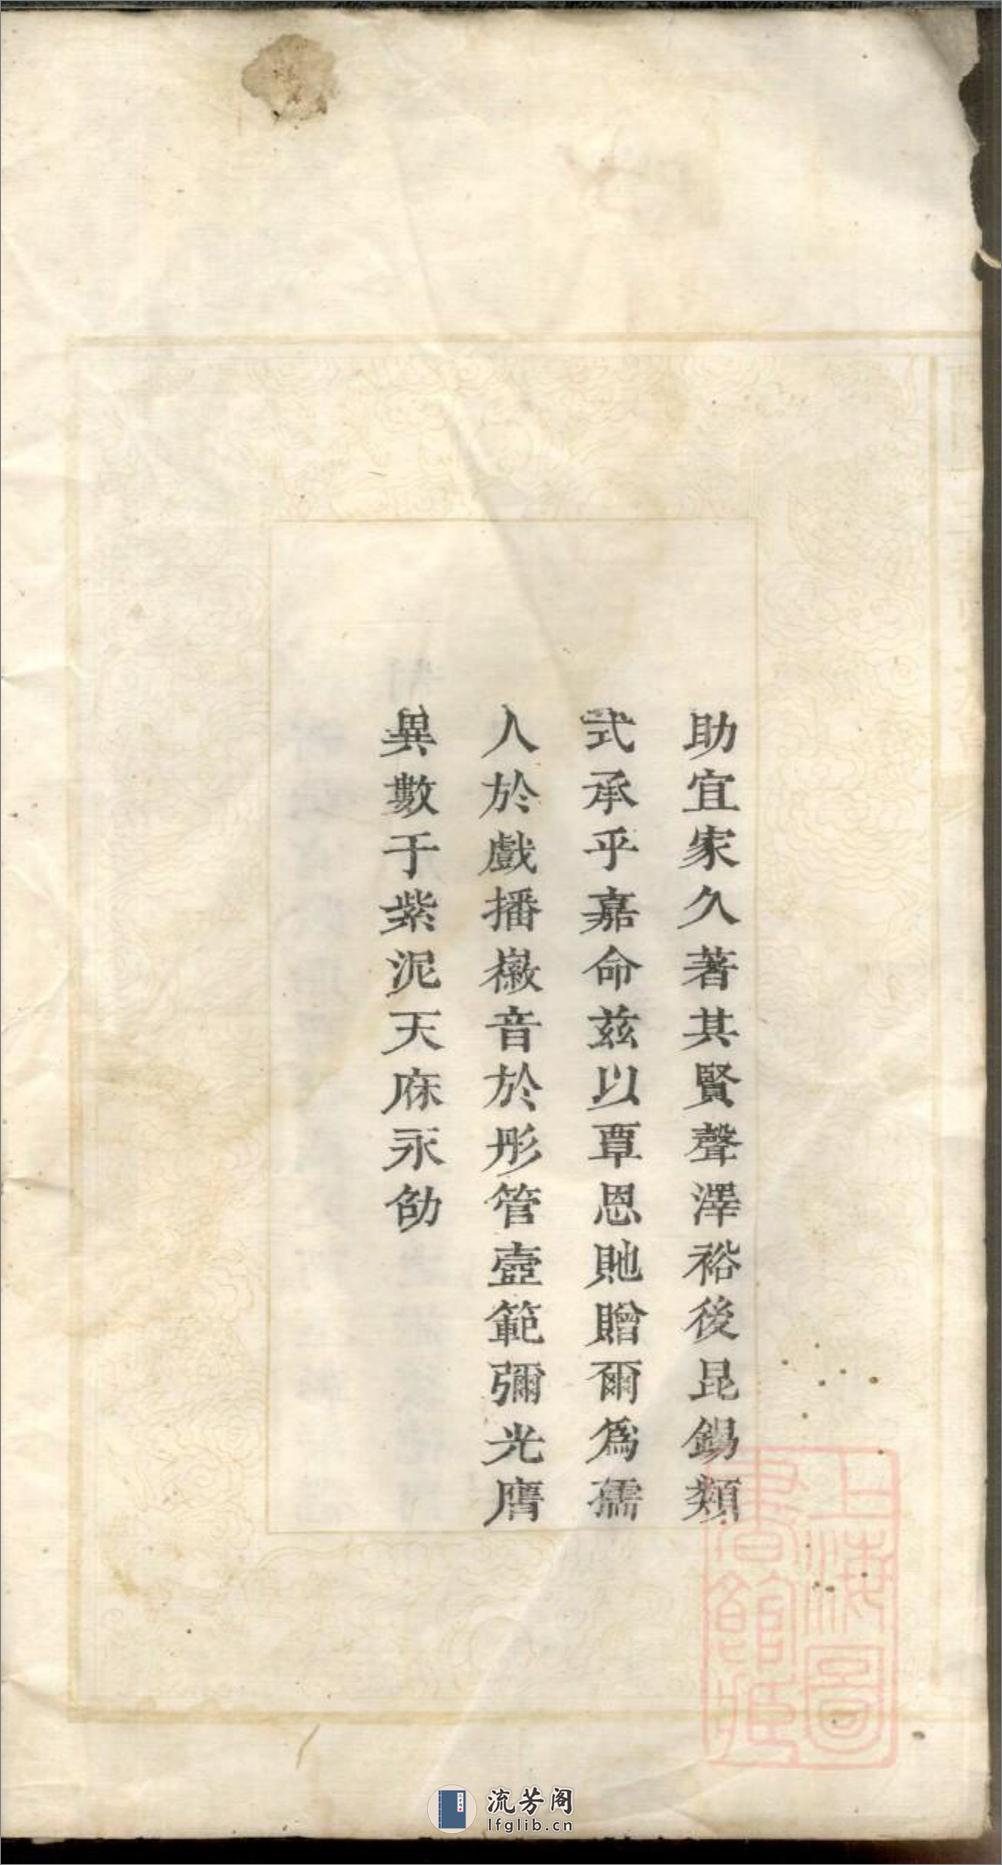 助宜家久著其賢聲澤裕後昆錫類
式承乎嘉命茲以覃恩貤贈爾爲孺
人於戲播徽音於彤管壼範彌光膺
異數于紫泥天庥永劭
上海圖
書館藏
流芳阁
lfglib.cn